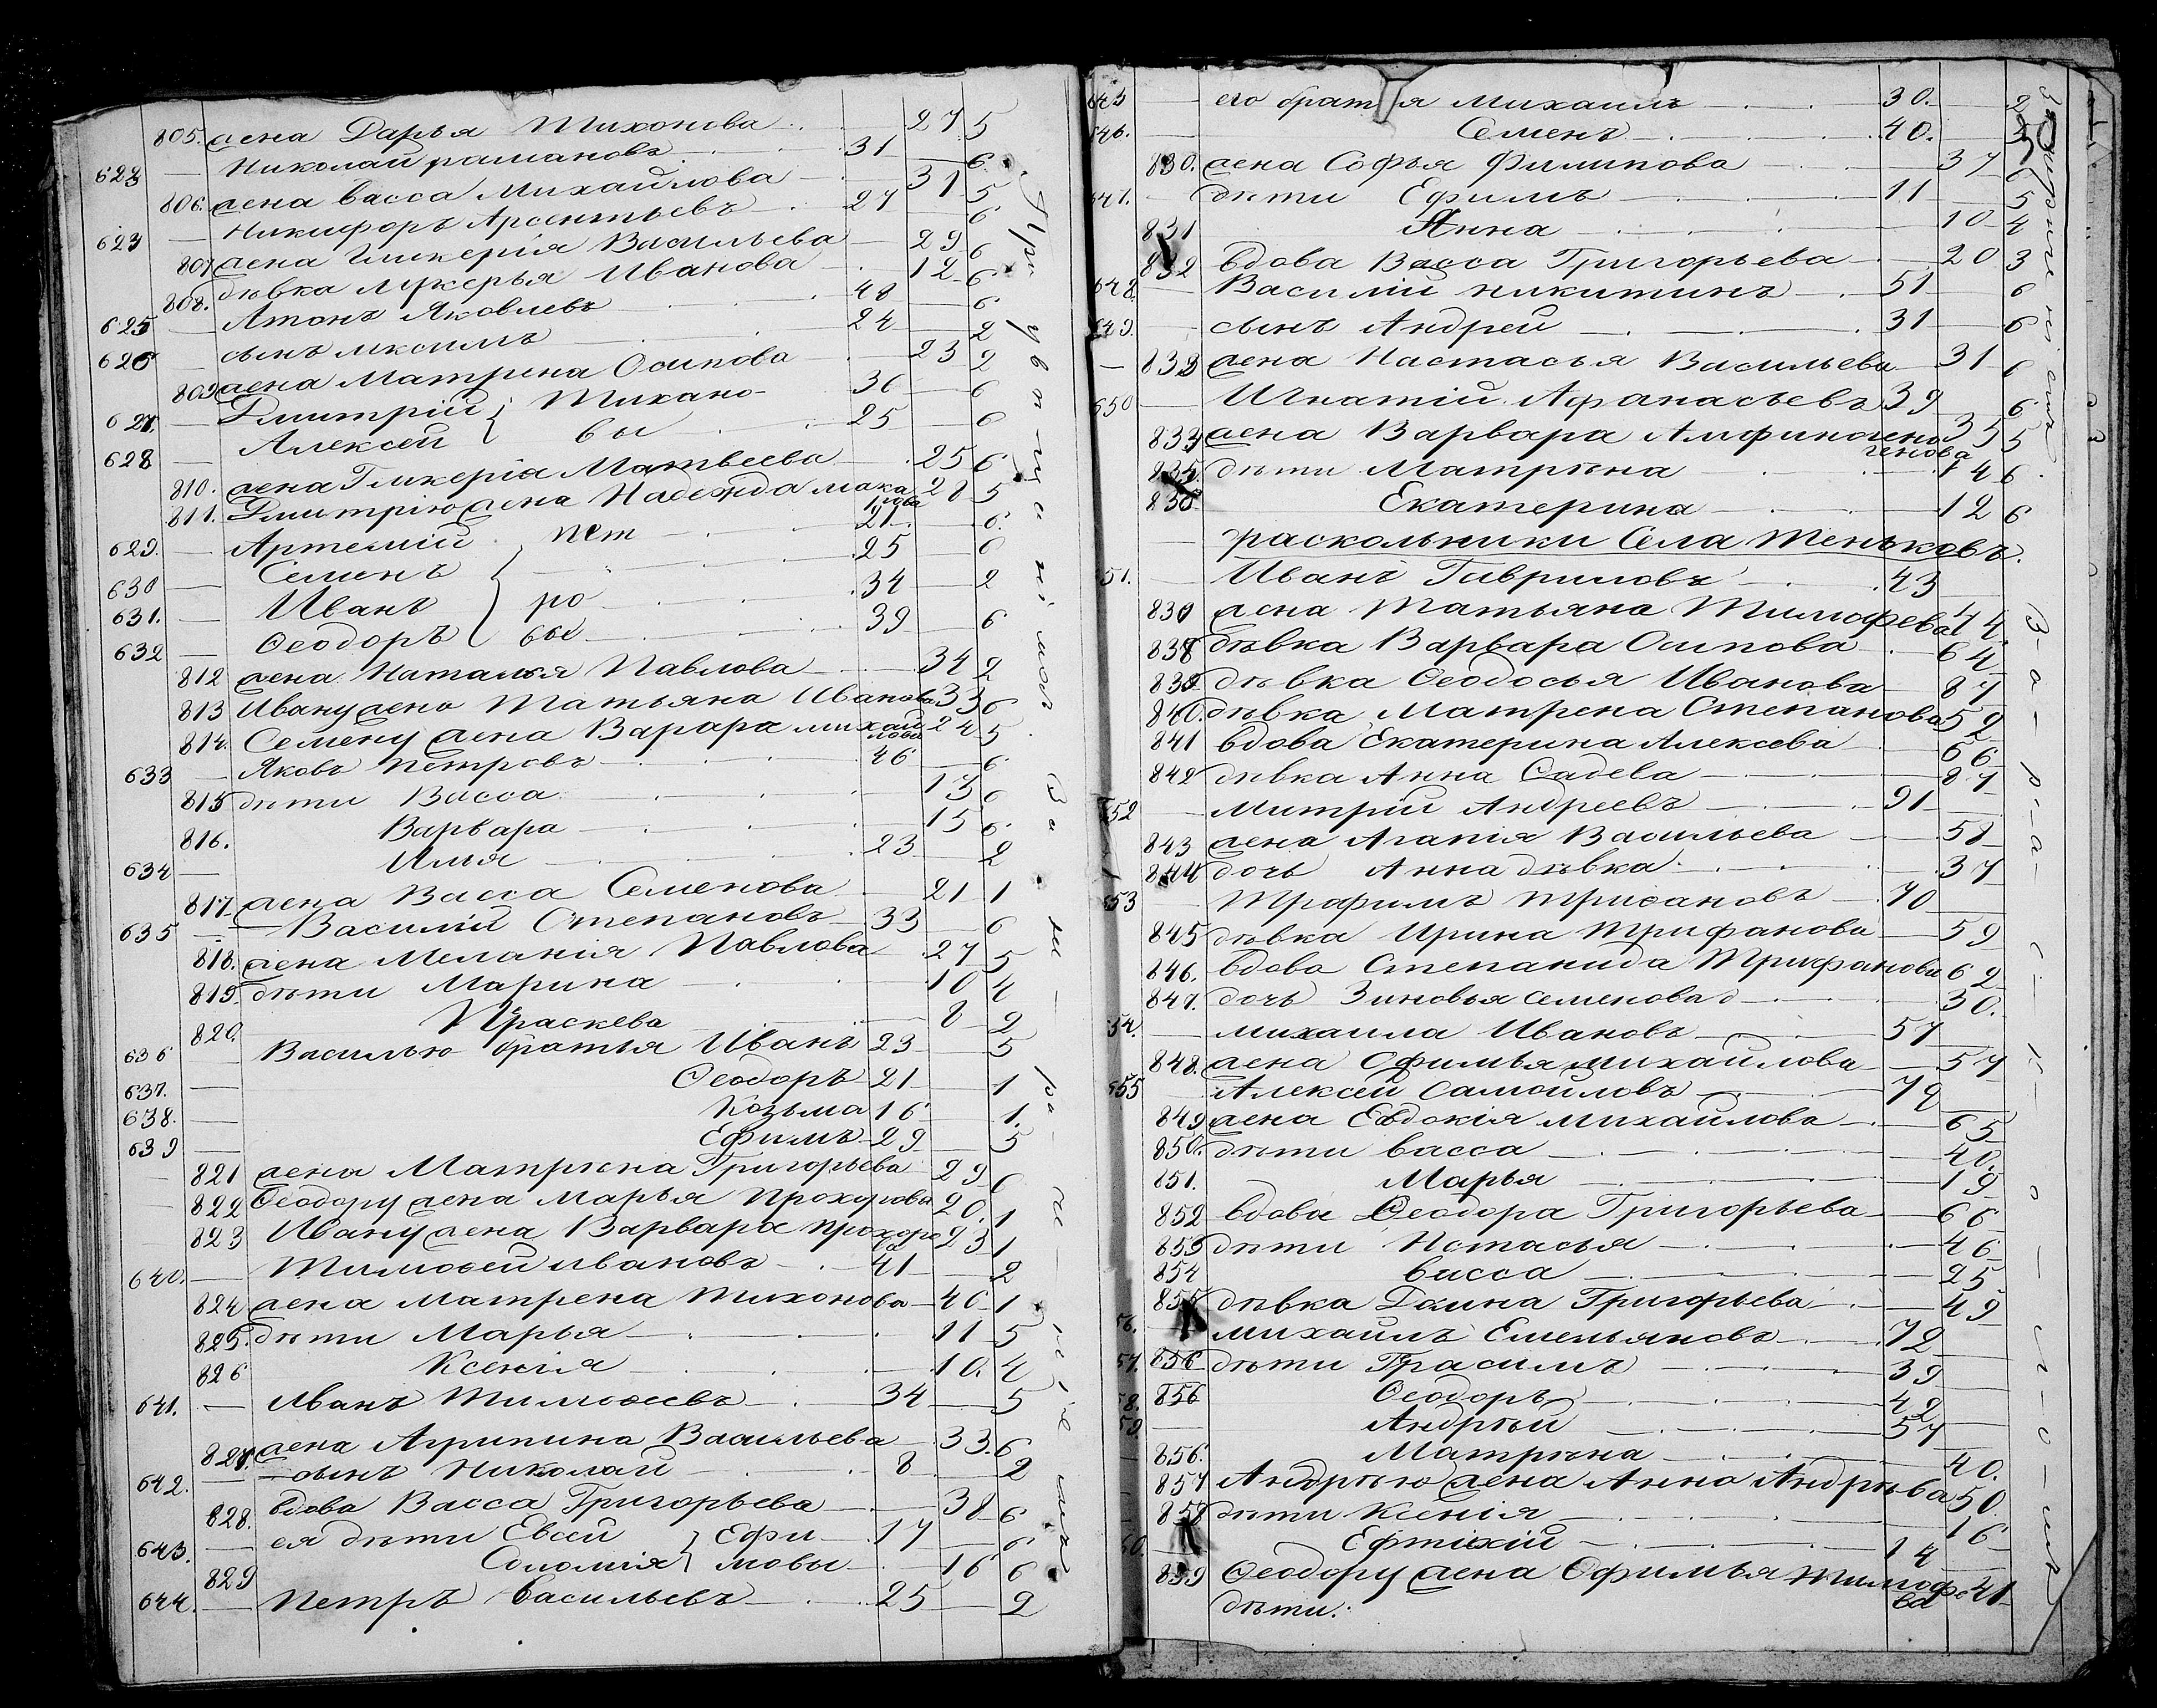 805. жена Дарья Тихонова 27 5
622 Николай рамановъ 31 6
806. жена васса Михайлова 31 5
623 Никифоръ Арсентьевъ 27 6
807 жена Гликерія Васильева 29 6
808. дѣвка лукерья Иванова 12 6
625 Антонъ Яковлевъ 48 6
626 сынъ максимъ 24 2
809 жена Матрена Осипова 23 2
627. Дмитрій } Тихано- 36 6
628 Алексей } вы 25 6
810. жена Гликерія Матвеева 25 6
811. Дмитрію жена Надежда мака 28 5
рова
629. Артемій } пет 21 6.
630 Семенъ 25 6
631. Иванъ } ро 34 2
632 Ѳеодоръ } вы 39 6
812 жена Наталья Павлова 34 2
813 Ивану жена Татьяна Иванова 33 6
814. Семену жена Варара михай 24 5
лова
633 Яковъ петровъ 46 6
815 дѣти Васса 13 6
816. Варвара 15 6
634 Илья 23 2
817. жена Васса Семенова 21 1
635 Василій Степановъ 33 6
818. жена Меланія Павлова 27 5
819. дѣти Марина 10 4
820. Праскева 8 2
636 Василью братья Иванъ 23 5
637. Ѳеодоръ 21 1
638. Козьма 16 1.
639 Ефимъ 29 5
821 жена Матрена Григорьева 29 6
822 Ѳеодору жена Марья Прохорова 20. 1
823 Ивану жена Варвара прохоро 23 1
ва
640. Тимоѳей ивановъ 41 2
824 жена Матрена тихонова 40 1
825. дѣти Марья 11 5
826 Ксенія 10. 4
641. Иванъ Тимоѳеевъ 34 5
827. жена Агрипина Васильева 33. 6
642. сынъ Николай 8 2
828. вдова Васса Григорьева 38 6
643. ея дѣти Евсей } Ефи 17 6
829 Соломія } мовы 16 6
644. Петръ васильевъ 25 2
при у в о щ е н і и
645 его братья михаилъ 30. 2
646. Семенъ 40. 5
830. жена Софья Филипова 37 6
647. дѣти Ефимъ 11 5
831 Анна 10 4
832 вдова Васса Григорьева 20 3
648. Василій никитинъ 51 6
649. сынъ Андрей 31 6
833 жена Настасья Васильева 31 6
650 Игнатій Афанасьевъ 39 6
833 жена Варвара Алфиноген 35 5
генова
835. дѣти Матрѣна 14 6
835 Екатерина 12 6
раскольники Села Теньковъ.
51. Иванъ Гавриловъ 43
830 жена Татьяна Тимофева 44
838 дѣвка Варвара Осипова 64
839 дѣвка Ѳеодосья Иванова 87
840. дѣвка Матрена Степанова 52
841 вдова Екатерина Алексева 66
842 дѣвка Анна Садева 87
652 Митрій Андреевъ 91
843 жена Агапія Васильева 58
844 дочь Анна дѣвка 37
653 Трафимъ 70
845 дѣвка Ирина Трифанова 59
846. вдова Степанида Трифанова 62
847. дочь Зиновья семенова 30.
54. михаила Ивановъ 57
848. жена Офимья михайлова 57
655 Алексей самойловъ 72
849 жена Евдокія михайлова 65
850. дѣти васса 40.
851. Марья 19
852 вдова Ѳеодора Григорьева 66
853 дѣти Настасья 46
854 васса 25
855 дѣвка Домна Григорьева 49
56. михаилъ Емельяновъ 72
57. 856 дѣти Гарасимъ 39
58. 856 Ѳеодоръ 42
59 Андрѣй 57
856. Матрѣна 40.
857 Андрѣю жена Анна Андрѣва 50
858 дѣти Ксенія 16
60. Ефтихій 14
859 Ѳеодору жена Офимья тимоф 41
ва
дѣти: